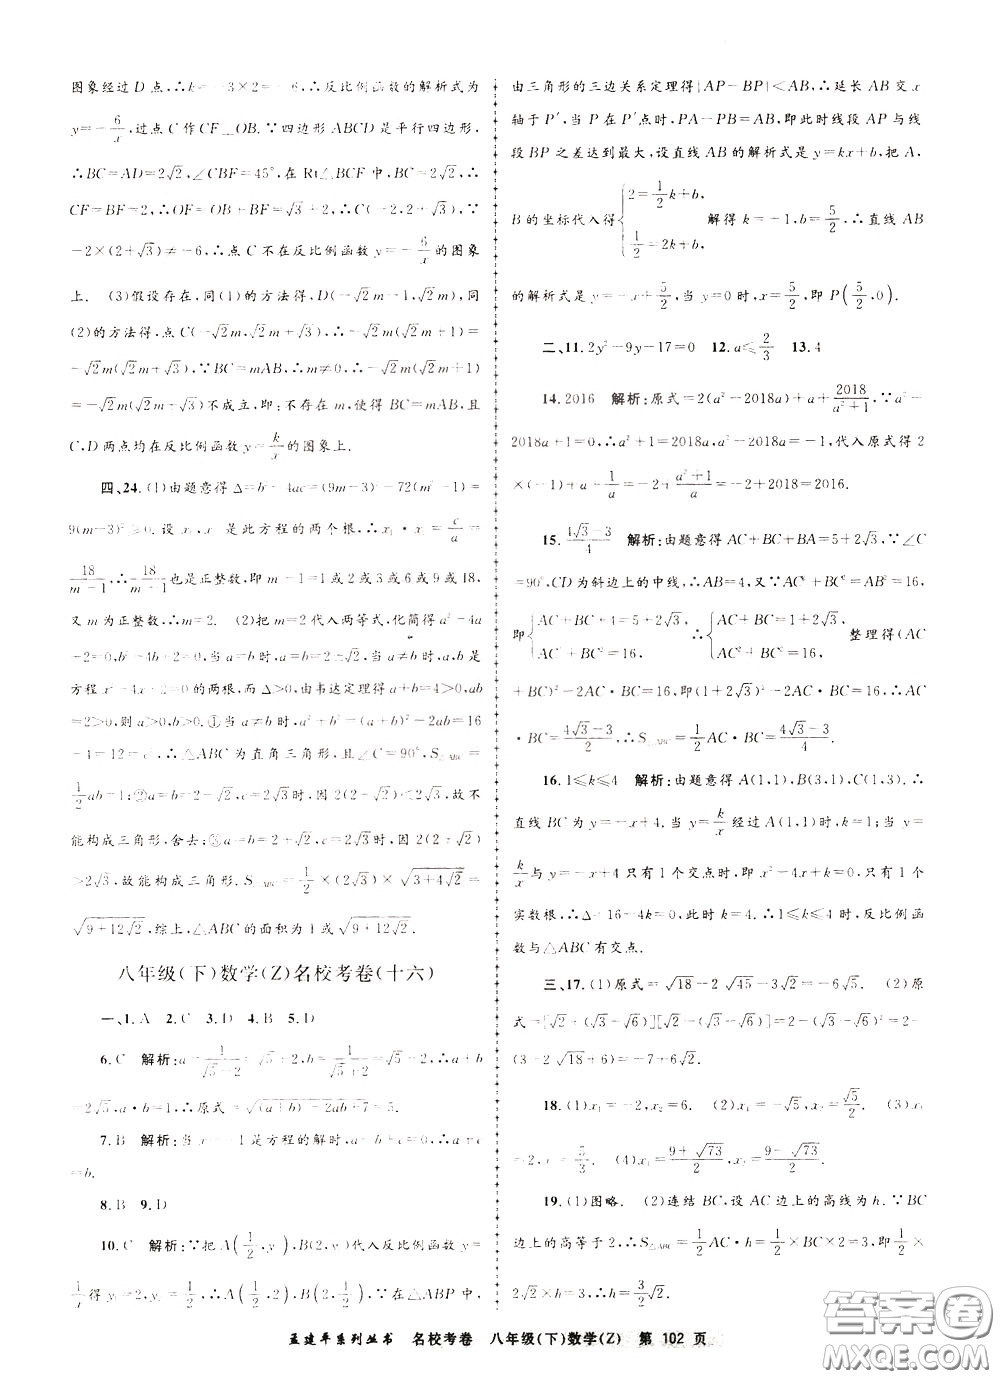 图象经过D点,∴k=-3×2=-6,∴反比例函数的解析式为
y=-6/x,过点C作CF⊥OB.∵四边形ABCD是平行四边形,
∴BC=AD=2√2,∠CBF=45°,在Rt△BCF中,BC=2√2,∴
CF=BF=2,∴OF=OB+BF=√3+2,∴C(-2,2+√3),∵
-2×(2+√3)≠-6,∴点C不在反比例函数y=-6/x的图象
上. (3)假设存在,同(1)的方法得,D(-√2m-1,√2m),同
(2)的方法得,点C(-√2m,√2m+√3),∴-√2m(√2m+1)=
-√2m(√2m+√3),∵BC=mAB,∴m≠0,∴-√2m(√2m+1)
=-√2m(√2m+√3)不成立,即:不存在m,使得BC=mAB,且
C,D两点均在反比例函数y=k/x的图象上.
四、24.(1)由题意得Δ=b²-4ac=(9m-3)²-72(m²-1)=
9(m-3)²≥0.设x₁,x₂是此方程的两个根,∴x₁·x₂=c/a=
18/(m²-1),∴18/(m²-1)也是正整数,即m²-1=1或2或3或6或9或18,
又m为正整数,∴m=2. (2)把m=2代入两等式,化简得a²-4a
+2=0,b²-4b+2=0.当a=b时,a=b=2±√2,当a≠b时,a,b是
方程x²-4x+2=0的两根,而Δ>0,由韦达定理得a+b=4>0,ab
=2>0,则a>0,b>0.①当a≠b时,a²+b²=(a+b)²-2ab=16
-4=12=c²,∴△ABC为直角三角形,且∠C=90°,S△ABC=
1/2ab=1;②a=b=2-√2,c=2√3时,因2(2-√2)<2√3,故不
能构成三角形,舍去;③a=b=2+√2,c=2√3时,因2(2+√2)
>2√3,故能构成三角形.S△ABC=1/2×(2√3)×√(3+4√2)=
√(9+12√2),综上,△ABC的面积为1或√(9+12√2).
八年级(下)数学(Z)名校考卷(十六)
一、1.A 2.C 3.D 4.B 5.D
6.C 解析:a=1/(√5-2)=√5+2,b=1/(√5+2)=√5-2,∴a+b
=2√5,a·b=1,∴原式=√((a+b)²-2ab+7)=5.
7.B 解析:当x=-1是方程的解时,a-b+c=0,∴a+c
=b.
8.B 9.D
10.C 解析:∵把A(1/2,y₁),B(2,y₂)代入反比例函数y=
1/x得y₁=2,y₂=1/2,∴A(1/2,2),B(2,1/2),∵在△ABP中,
由三角形的三边关系定理得|AP-BP|<AB,∴延长AB交x
轴于P′,当P在P′点时,PA-PB=AB,即此时线段AP与线
段BP之差达到最大,设直线AB的解析式是y=kx+b,把A,
B的坐标代入得{2=1/2k+b, 1/2=2k+b, 解得k=-1,b=5/2,∴直线AB
的解析式是y=-x+5/2,当y=0时,x=5/2,即P(5/2,0).
二、11.2y²-9y-17=0 12.a≤2/3 13.4
14.2016 解析:原式=2(a²-2018a)+a+2018/(a²+1),∵a²-
2018a+1=0,∴a²+1=2018a,a²-2018a=-1,代入原式得2
×(-1)+a+(a²+1)/a=-2+(a²+1)/a=-2+2018=2016.
15.(4√3-3)/4 解析:由题意得AC+BC+BA=5+2√3,∵∠C
=90°,CD为斜边上的中线,∴AB=4,又∵AC²+BC²=AB²=16,
即{AC+BC+4=5+2√3, AC²+BC²=16, ∴{AC+BC=1+2√3, AC²+BC²=16, 整理得(AC
+BC)²-2AC·BC=16,即(1+2√3)²-2AC·BC=16,∴AC
·BC=(4√3-3)/2,∴S△ABC=1/2AC·BC=(4√3-3)/4.
16.1≤k≤4 解析:由题意得A(1,1),B(3,1),C(1,3).∴
直线BC为y=-x+4.当y=k/x经过A(1,1)时,k=1;当y=
k/x与y=-x+4只有1个交点时,即x²-4x+k=0只有1个
实数根,∴Δ=16-4k=0,此时k=4.∴1≤k≤4,反比例函
数与△ABC有交点.
三、17.(1)原式=√18-2√45=3√2-6√5. (2)原
式=[√2+(√3-√6)][√2-(√3-√6)]=2-(√3-√6)²=2-
(3-2√18+6)=-7+6√2.
18.(1)x₁=-2,x₂=6. (2)x₁=-√5,x₂=√5/2. (3)x₁
=2,x₂=5/3. (4)x₁=(9+√73)/2,x₂=(9-√73)/2.
19.(1)图略. (2)连结BC,设AC边上的高线为h.∵BC
边上的高等于2,∴S△ABC=1/2AC·h=1/2×BC×2=3,∴1/2×
2√2×h=3,∴h=3/2√2.
孟建平系列丛书 名校考卷 八年级(下)数学(Z) 第 102 页
答案圈
MXQE.COM